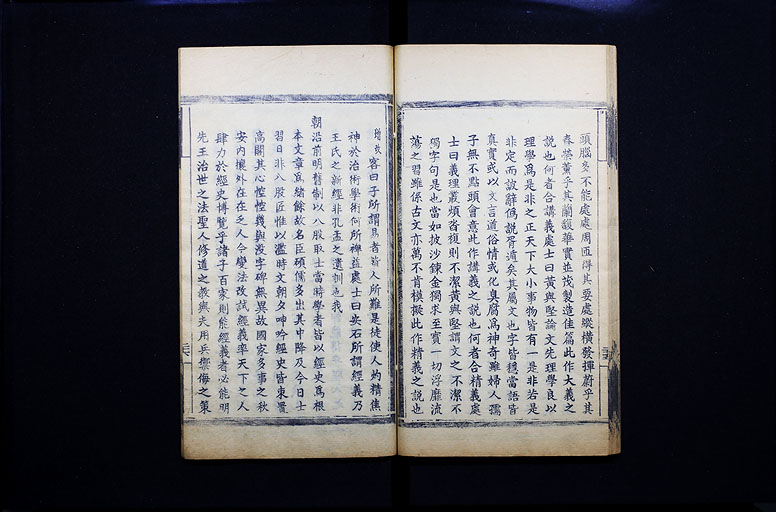 頭腦多不能處處周匝得其要處縱橫發揮蔚乎其
春榮薰乎其蘭馥華實並茂製造佳篇此作大義之
說也何者合講義處士曰黃與堅論文先理學良以
理學爲是非之正天下大小事物皆有一是非若是
非定而詖辭僞說胥遁矣其屬文也字皆穩當語皆
真實或以文言道俗情或化臭腐爲神奇雖婦人孺
子無不點頭會意此作講義之說也何者合精義處
士曰義理叢煩沓複則不潔黃與堅謂文之不潔不
獨字句是也當如披沙鍊金獨求至寶一切浮靡流
蕩之習雖係古文亦萬不肯模擬此作精義之說也
客曰子所謂爲者皆人所難是徒使人灼精焦
神於治術學術何所裨益處士曰安石所謂經義乃
王氏之新經非孔孟之遺訓也我
朝沿前明舊制以八股取士當時學者皆以經史爲根
本文章爲緒餘故名臣碩儒多出其中降及今日士
習日非八股匠惟以濫時文朝夕呻吟經史皆束置
高閣其心惶惶幾與沒字碑無異故國家多事之秋
安內攘外在在乏人今變法改試經義率天下之人
肆力於經史博覽乎諸子百家則能經義者必能明
先王治世之法聖人修道之教與夫用兵禦侮之策